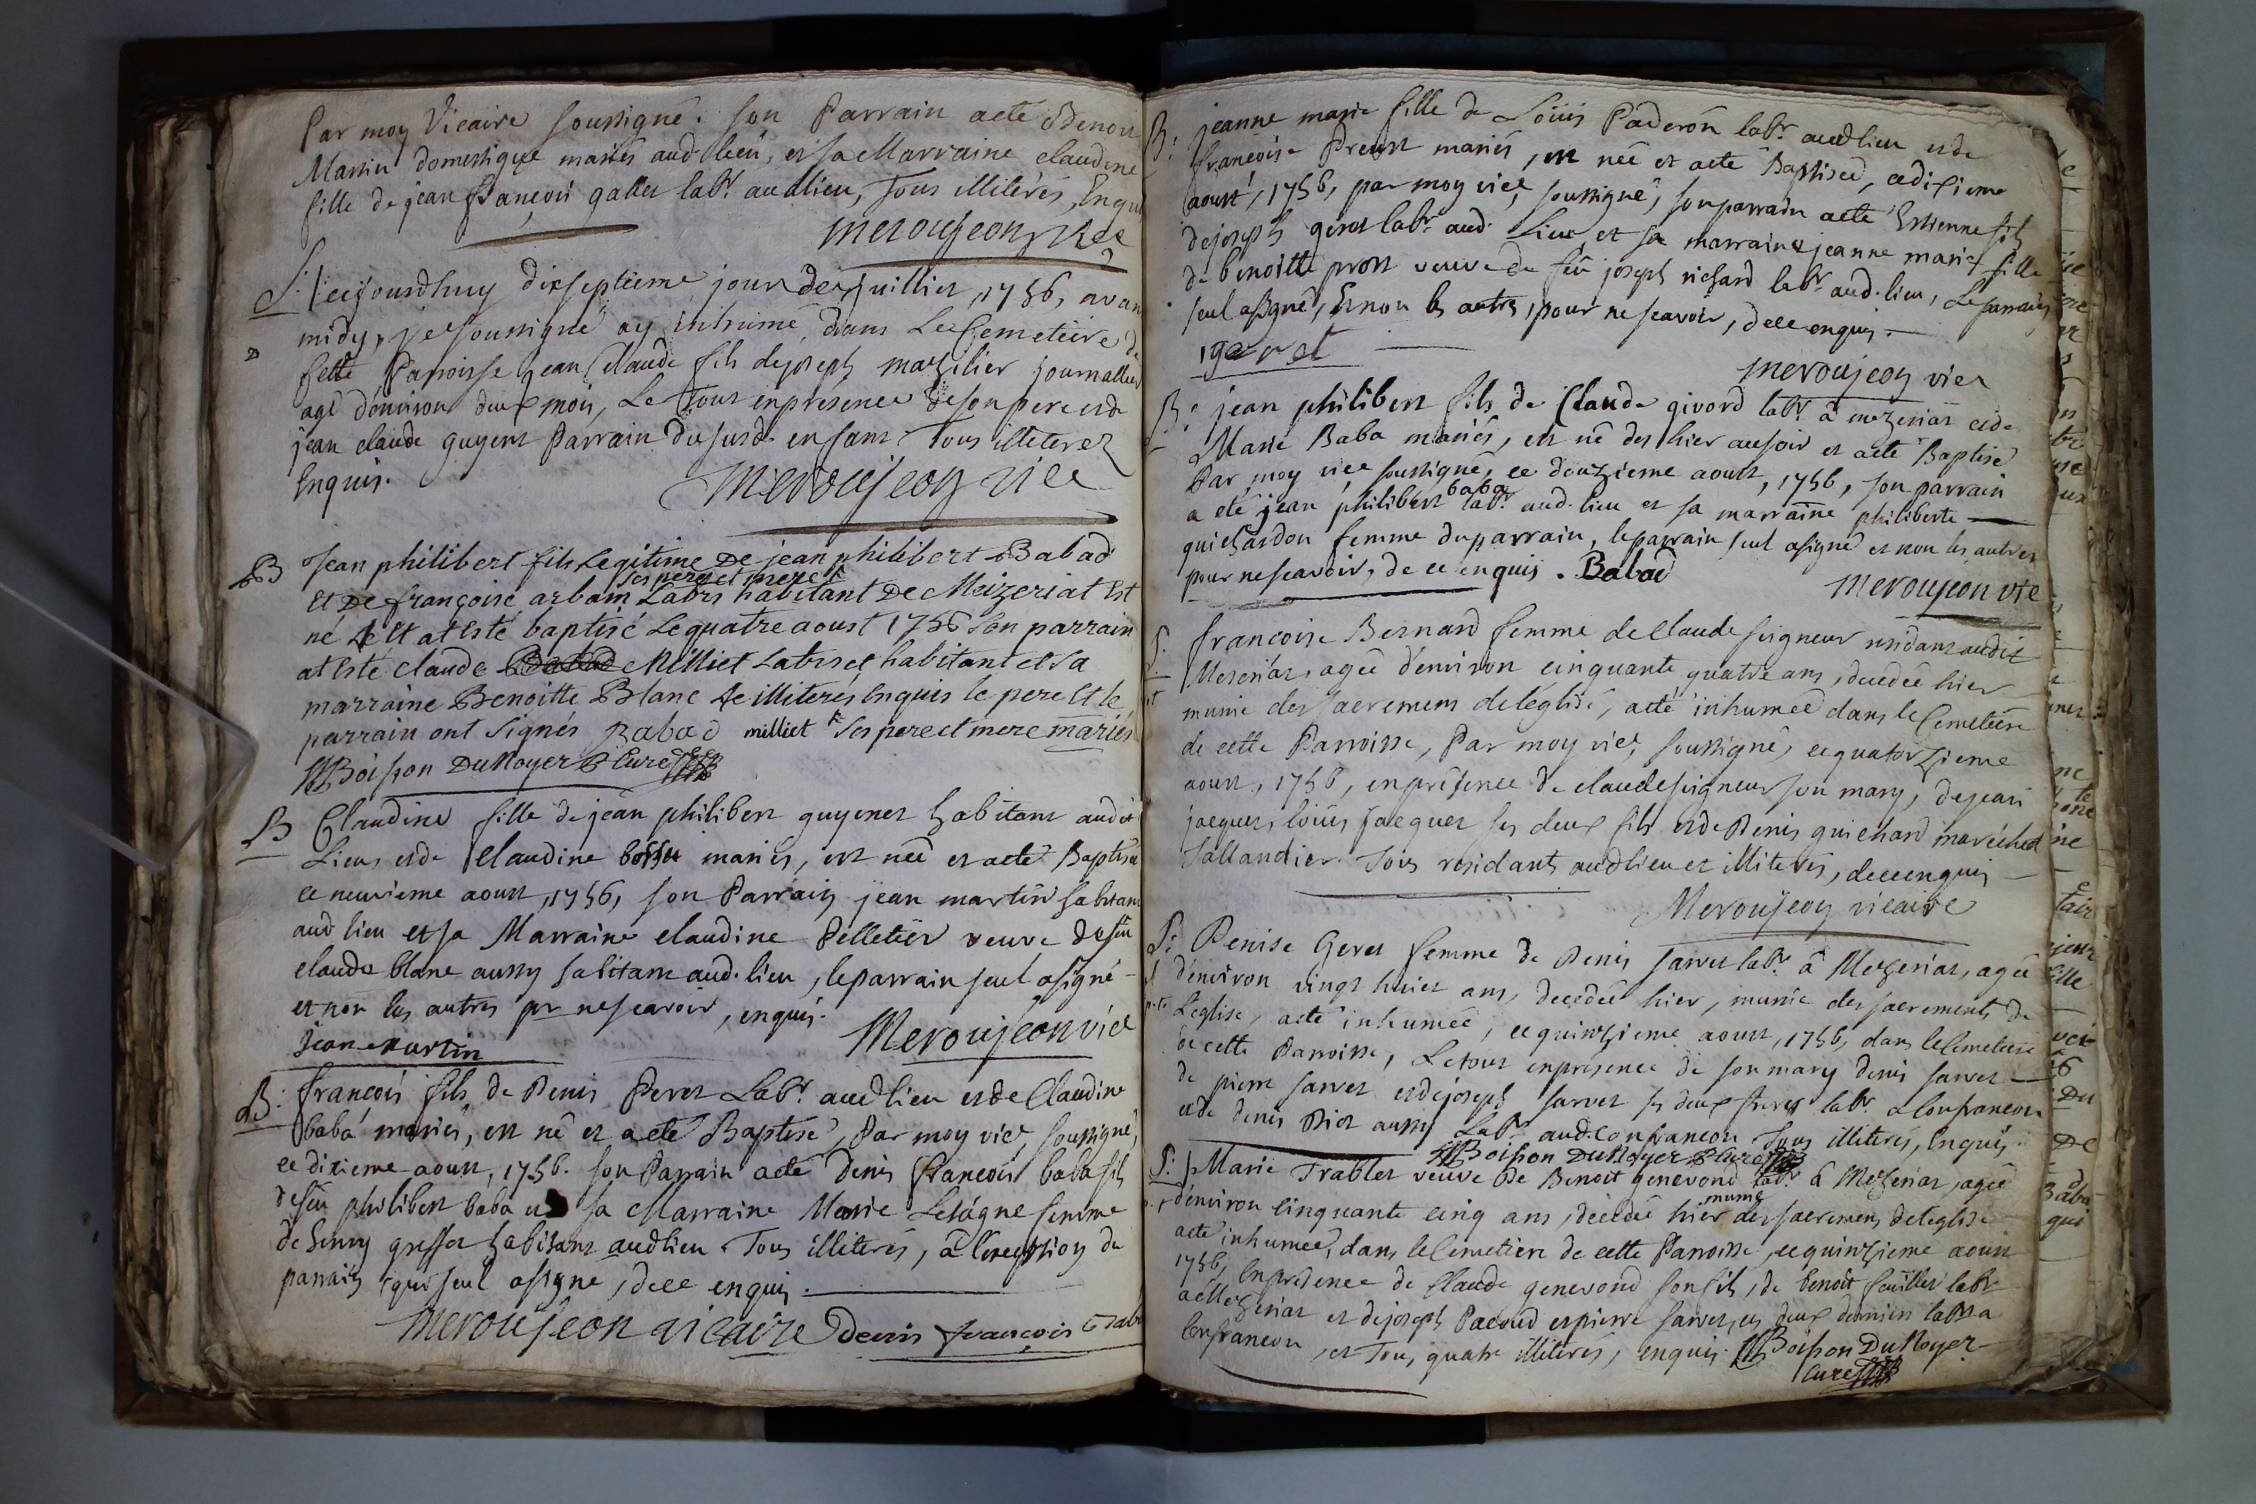 Par moy Vicaire soussigné. son Parrain aeté Benoit
Martin domestique mariés aud lieu, et sa Marraine claudine
fille de jean françois gallet labr. audlieu, Tous illiterés, Enquis
meroujeon vice
S. Cejourdhuy dixseptieme jour de juillier, 1756, avan
midy, je soussigné ay inhumé dans Le Cemetiere de
Cette Paroisse jean Claude fils de joseph mazilier journallier
agé denviron deux mois, Le Tout enpresence de son pere et de
jean claude guyent Parrain du susd. enfant Tous illeterez
Enquis.
Meroujeon vice
B Jean philibert fils Legitime De jean philibert Babad
ses pere et mere
Et De françoise arbain Labrs habitant De Meizeriat Est
né et at Esté baptisé Le quatre aoust 1756 Son parrain
at Esté claude Milliet Labr et habitant et Sa
marraine Benoitte Blanc illiterés Enquis le pere Et le
parrain ont Signés Babad milliet ses pere et mere mariés
Boisson DuNoyer Curé
B Claudine fille de jean philibert guyenet habitant audit
Lieu, et de Claudine bosset mariés, est née et aeté Baptisée
ce neuvieme aoust, 1756, son Parrain jean martin habitant
aud lieu et sa Marraine claudine Pelletier veuve de feu
claude blanc aussy habitant aud. lieu, le parrain seul asigné
et non les autres pr ne scavoir, enquis.
Jean martin Meroujeon vice
B: françois fils de Denis Peret Labr. audlieu et de Claudine
baba mariés, est né et aeté Baptisé, Par moy vice, soussigné,
ce dixieme aoust, 1756. son Parrain aeté Denis françois baba fils
de feu philibert baba et sa Marraine Marie Lesagne femme
de henry greffet habitant audlieu. Tous illiterés, à l'exception du
parrain qui seul asigné, dece enquis.
Meroujeon vicaire Denis françois Bab
B: jeanne marie fille de Loüis Paderon labr. audlieu et de
françoise Prevost mariés, est née et aeté Baptisée, ce dixieme
aoust, 1756, par moy vice, soussigné, son parrain aeté Estienne fils
de joseph geret labr. aud. Lieu, et sa marraine jeanne marie fille
de benoitte prost veuve de feu joseph richard labr. aud. lieu, Le parrain
seul asigné, Et non les autres, pour ne scavoir, dece enquis.
Meroujeon vice
B: jean philibert fils de Claude givord labr. à mezeriat et de
Marie Baba mariés, est né des hier ausoir et aeté Baptisé
Par moy vice soussigné, ce douzieme aoust, 1756, son parrain
baba
a eté jean philibert labr. aud. lieu et sa marraine philiberte
guichardon femme du parrain, le parrain seul asigné et non les autres
pour ne scavoir, de ce enquis. Babad
Meroujeon vice
S. francoise Bernard femme de Claude seigneur residant audit
Meseriat, agée d'environ cinquante quatre ans, decedée hier
munie des sacremens de léglise, aeté inhumée dans le Cemetiere
de cette Parroisse, Par moy vice, soussigné, ce quatorzieme
aoust, 1756, en présence de claude seigneur son mary, de jean
jacques, loüis jacques ses deux fils et de Denis guichard maréchal
Taillandier. Tous residants audlieu et illiterés, dece enquis
Meroujeon vicaire
S: Denise Geret femme de Denis sarvet labr. à Mezeriat, agée
d'environ vingt huict ans, decedée hier, munie des sacrements de
L'eglise, aeté inhumée, ce quinzieme aoust, 1756, dans le Cemetiere
de cette Parroisse, Le tout enprésence de son mary denis sarvet
de pierre sarvet et de joseph sarvet ses deux freres labr. a Confrancon
et de denis Diot aussy Labr. aud. Confrancon Tous illiterés, Enquis.
Boisson DuNoyer Curé
S: Marie Trablet veuve De Benoit genevond labr. à Mezeriat, agée
munie
d'environ Cinquante cinq ans, decedée hier des sacremens de leglise
aeté inhumée, dans le Cemetiere de cette Parroisse, ce quinzieme aoust
1756, Enprésence de Claude genevond son fils, de benoit feuillet labr
à Mezeriat et de joseph Pacoud et pierre sarvet, ces deux derniers labrs a
Confrancon, et Tous quatre illiterés, enquis. Boisson DuNoyer
Curé